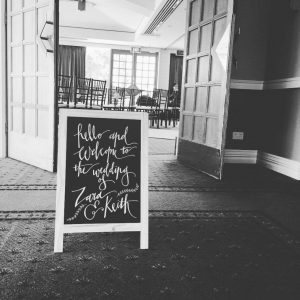 hello and
Welcome to
the wedding of
Zara
& Keith